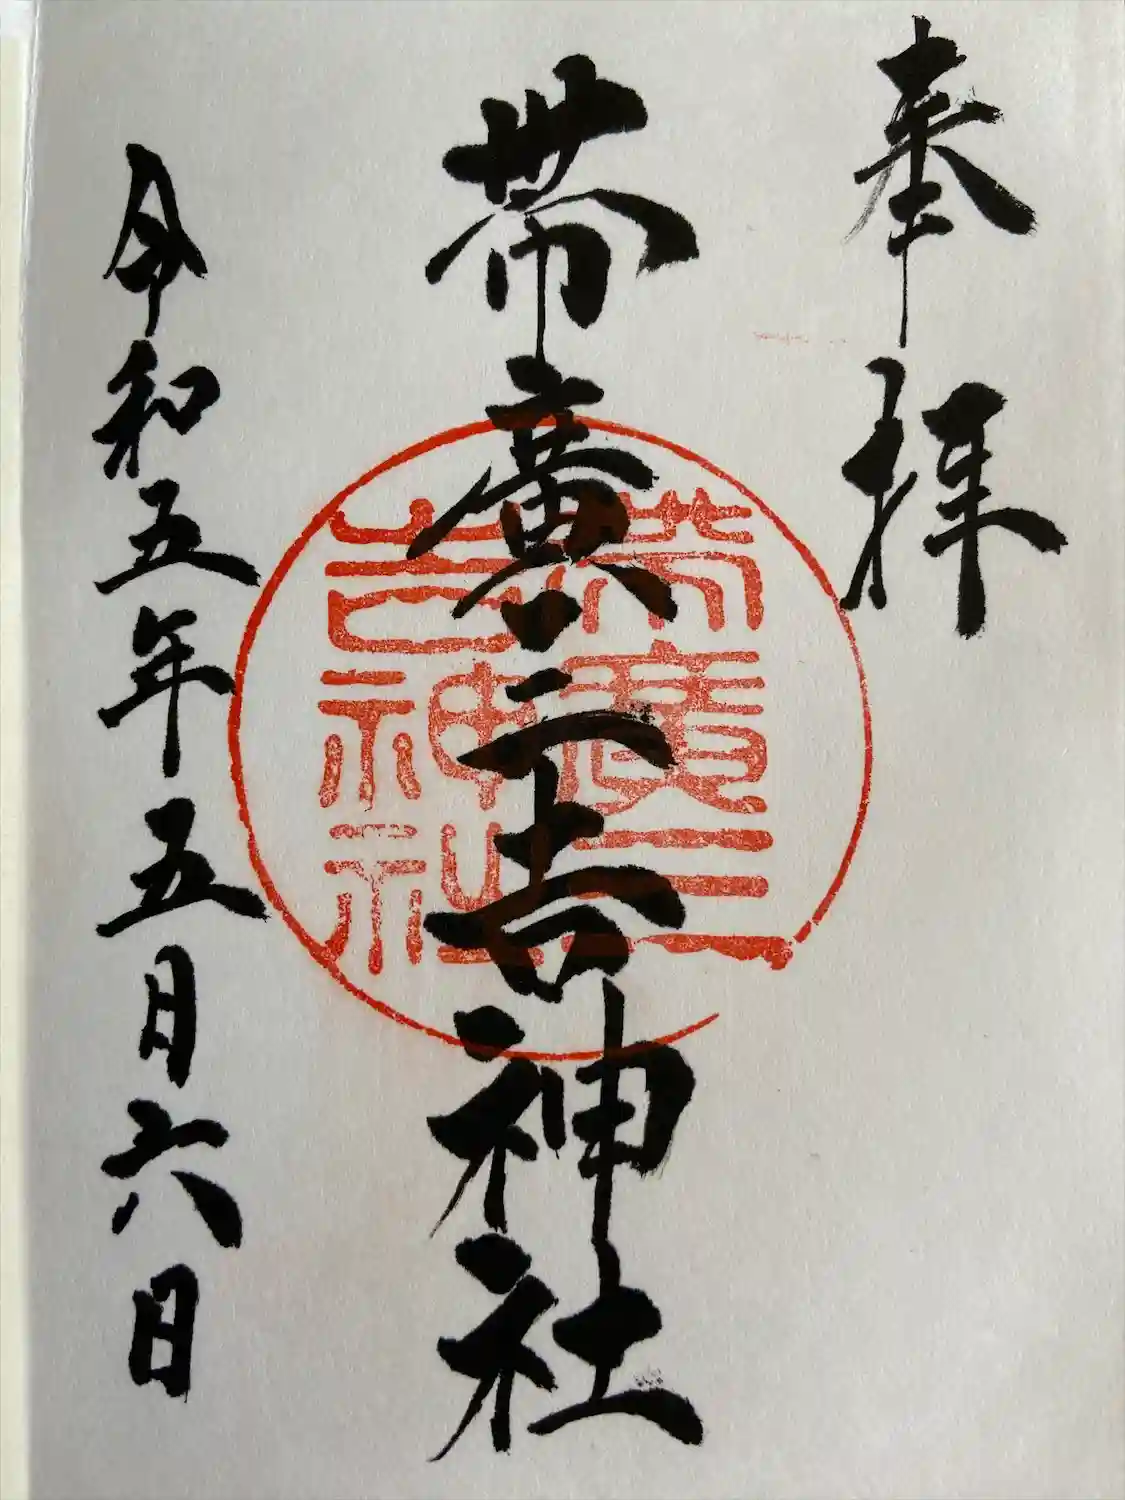 奉拝
帯廣三吉神社
令和五年五月六日
帯廣三
吉神社